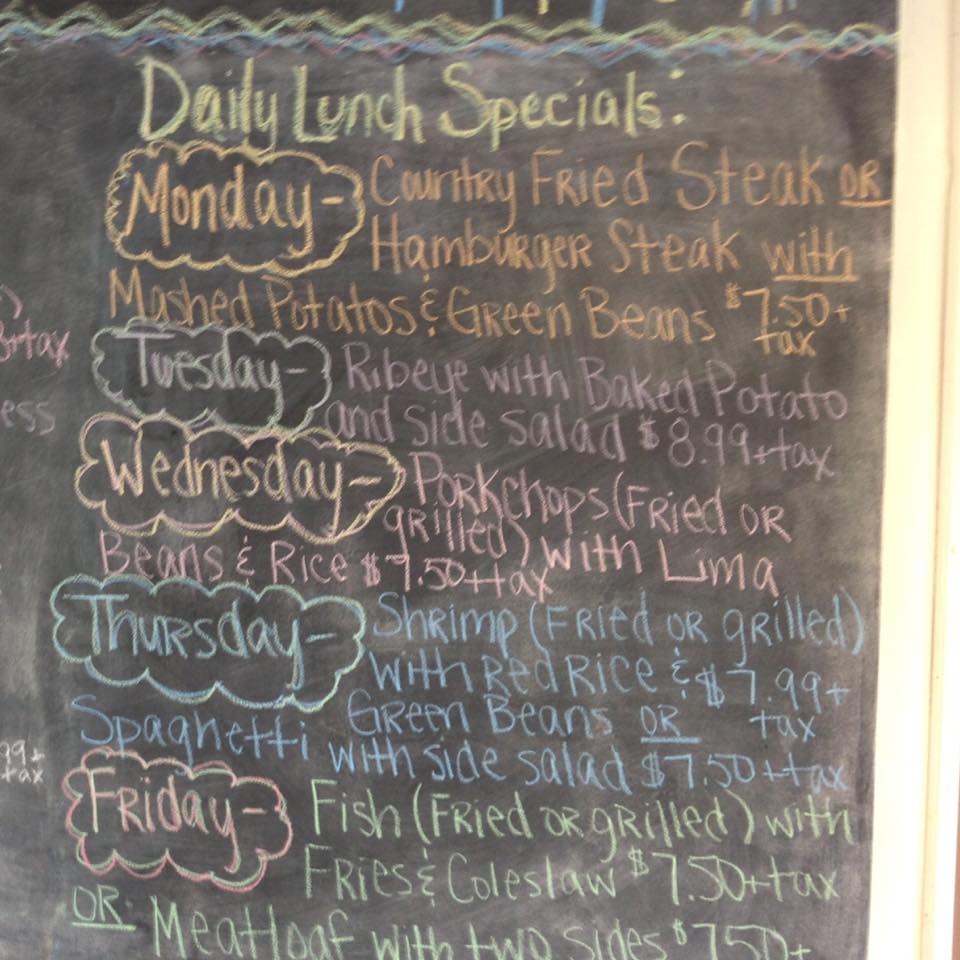 Daily Lunch Specials:
Monday- Country Fried Steak OR
Hamburger Steak with
Mashed Potatos & Green Beans $7.50+
tax
Tuesday- Ribeye with Baked Potato
and side salad $8.99+tax
Wednesday- Porkchops (Fried OR
grilled) with Lima
Beans & Rice $7.50+tax
Thursday- Shrimp (Fried OR grilled)
with Red Rice & $7.99+
Green Beans OR tax
Spaghetti with side salad $7.50+tax
Friday- Fish (Fried OR grilled) with
Fries & Coleslaw $7.50+tax
OR Meatloaf with two sides $7.50+
+tax
ess
99+
tax